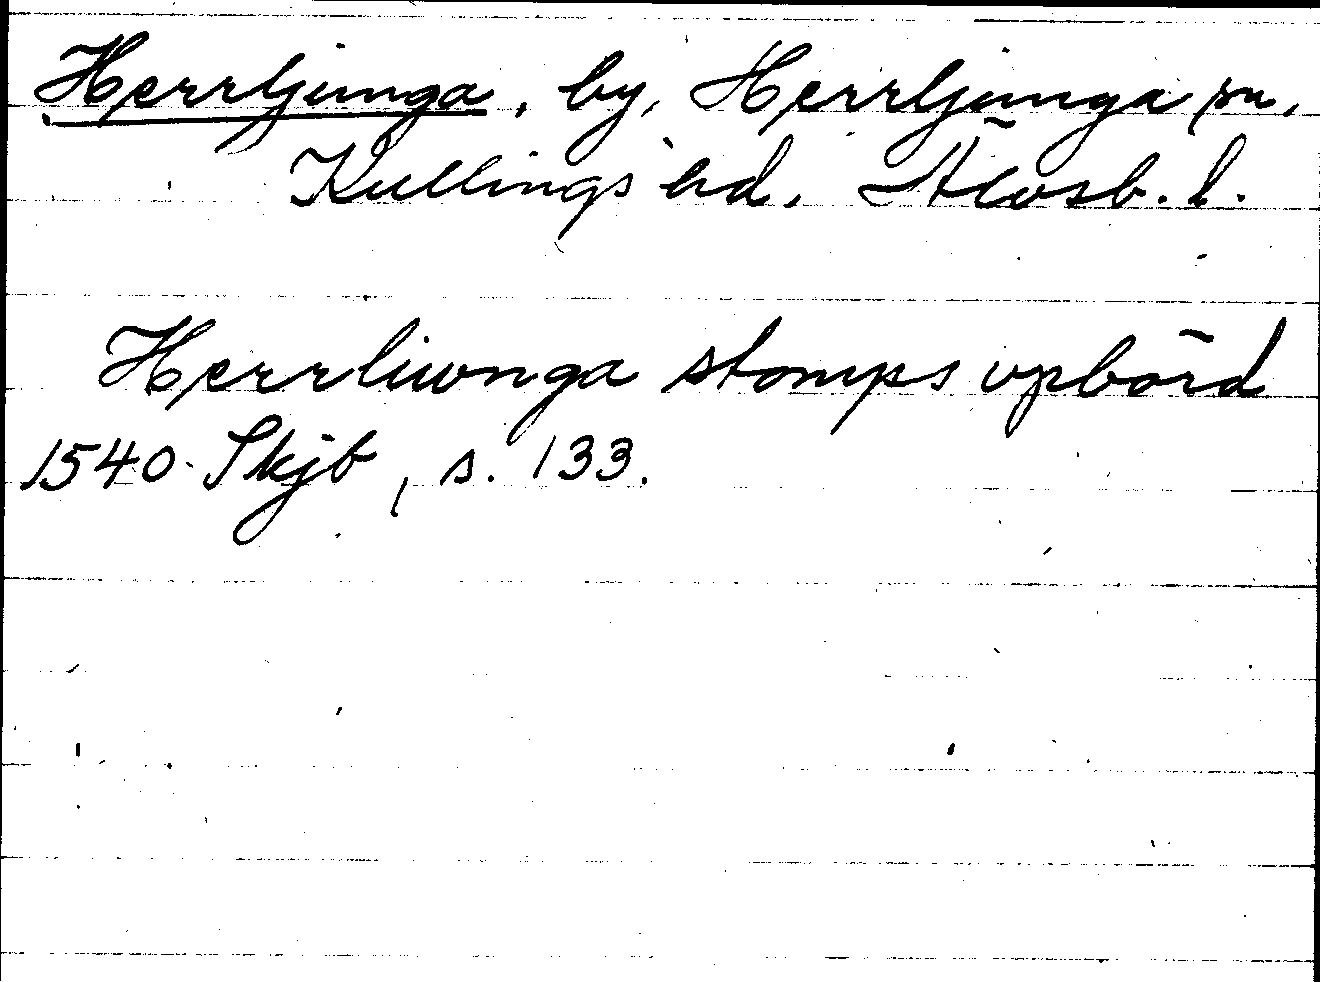 Herrljunga, by, Herrljunga sn,
Kullings hd. Älvsb. l.
Herrliwnga stomps vpbörd
1540 Skjb, s. 133.